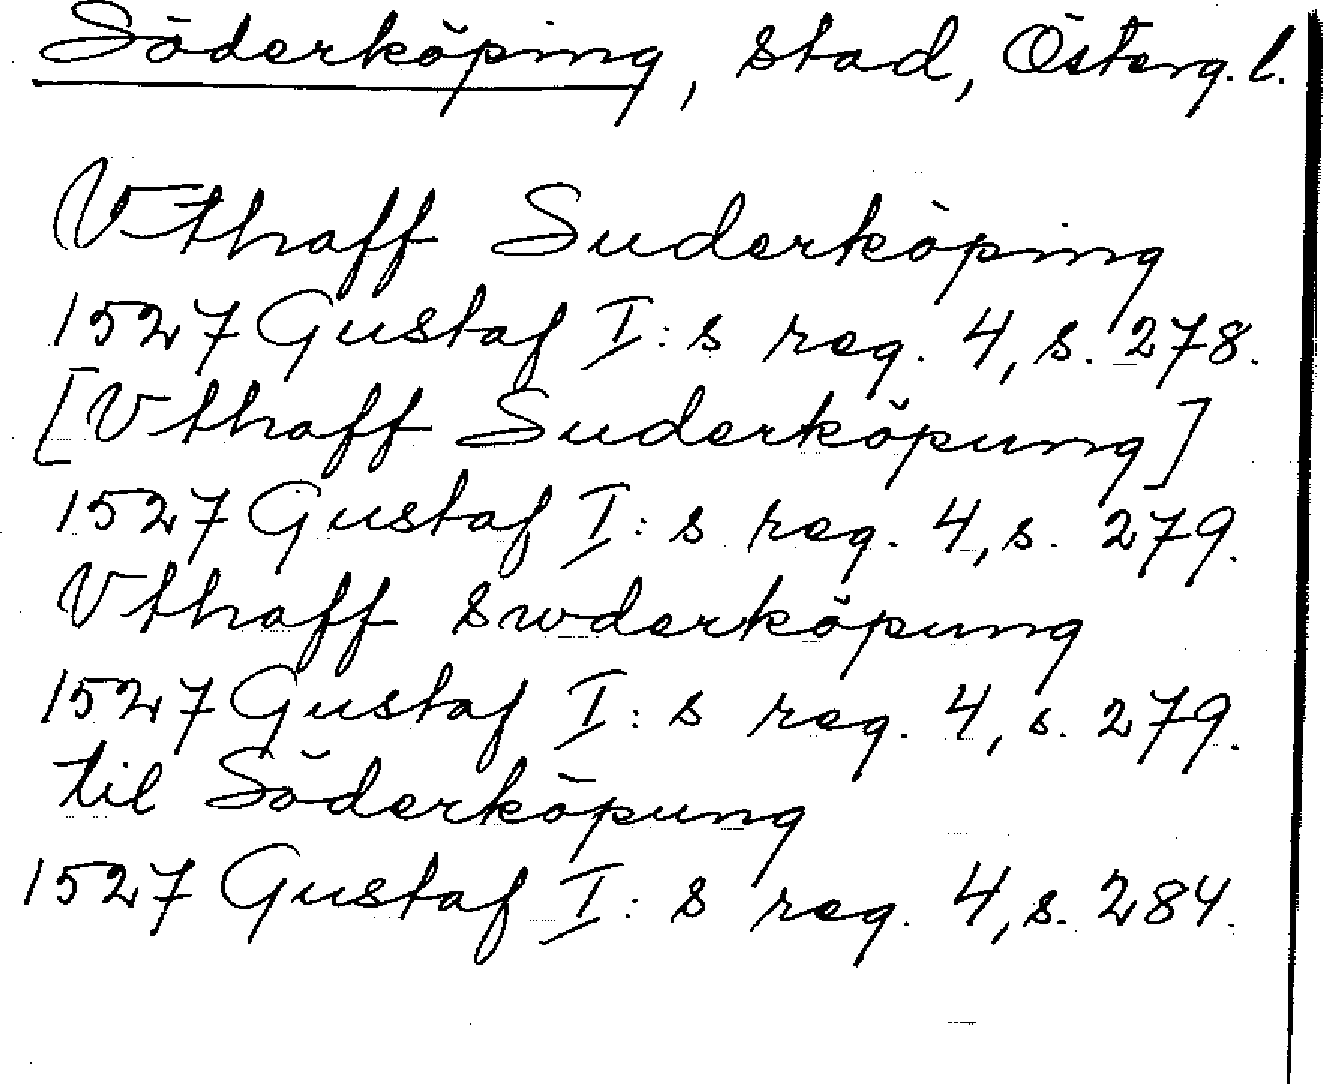 Söderköping, stad, Österg. l.
Vthaff Suderköping
1527 Gustaf I: s reg. 4, s. 278.
[Vthaff Suderköpung]
1527 Gustaf I: s reg. 4, s. 279.
Vthaff swderköpung
1527 Gustaf I: s reg. 4, s. 279.
til Söderköpung
1527 Gustaf I: s reg. 4, s. 284.